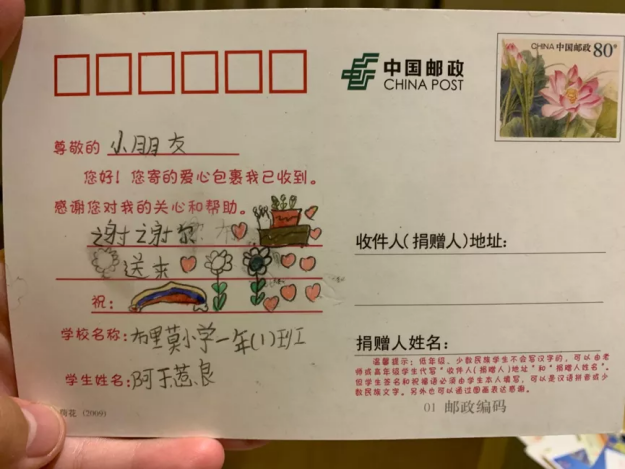 中国邮政
CHINA POST
CHINA 中国邮政 80分
尊敬的 小朋友
您好！您寄的爱心包裹我已收到。
感谢您对我的关心和帮助。
谢谢你
送来
祝：
学校名称：布里莫小学一年(1)班
学生姓名：阿于惹良
荷花（2009）
收件人(捐赠人)地址：
捐赠人姓名：
温馨提示：低年级、少数民族学生不会写汉字的，可以由老
师或高年级学生代写“收件人(捐赠人)地址”和“捐赠人姓名”。
但学生签名和祝福语必须由学生本人填写，可以是汉语拼音或少
数民族文字。另外也可以通过图画表达感谢。
01 邮政编码